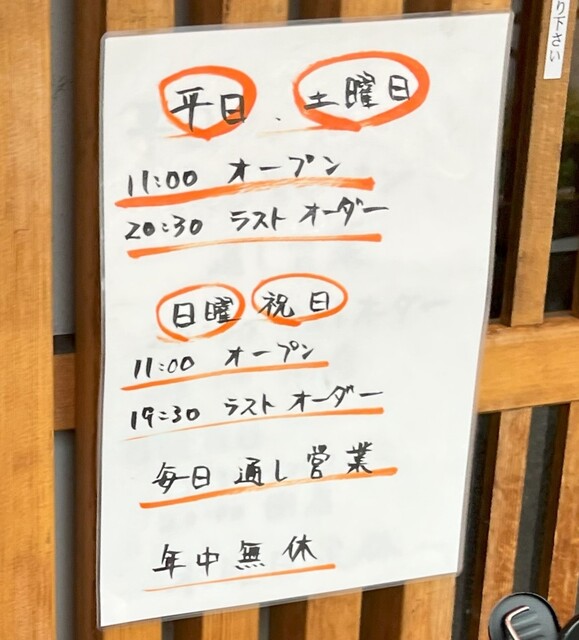 り下さい
平日・土曜日
11:00 オープン
20:30 ラストオーダー
日曜 祝日
11:00 オープン
19:30 ラストオーダー
毎日通し営業
年中無休